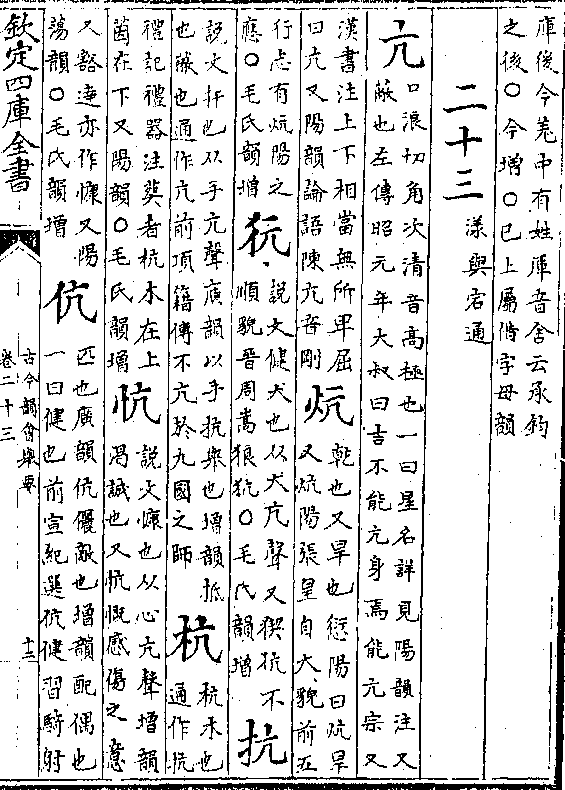 庫後今羗中有姓庫音舍云承鈞
之後○今增○已上屬借字母韻
二十三 漾與宕通
亢
口浪切角次清音高極也一曰星名詳見陽韻注又
蔽也左傳昭元年大叔曰吉不能亢身焉能亢宗又
漢書注上下相當無所卑屈
曰亢又陽韻論語陳亢音剛
炕
乾也又旱也愆陽曰炕旱
又炕陽張皇自大貌前五
行志有炕陽之
應○毛氏韻增
犺
說文健犬也从犬亢聲又猰犺不
順貌晉周嵩狼犺○毛氏韻增
抗
說文扞也从手亢聲廣韻以手抗舉也增韻抵
也蔽也通作亢前項籍傳不亢於九國之師
杭
杭木也
通作抗
禮記禮器注葬者杭木在上
茵在下又陽韻○毛氏韻增
忼
說文慷也从心亢聲增韻
渴誠也又忼慨感傷之意
又豁達亦作慷又陽
蕩韻○毛氏韻增
伉
匹也廣韻伉儷敵也增韻配偶也
一曰健也前宣紀選伉健習騎射
欽定四庫全書
古今韻會舉要
卷二十三
十二